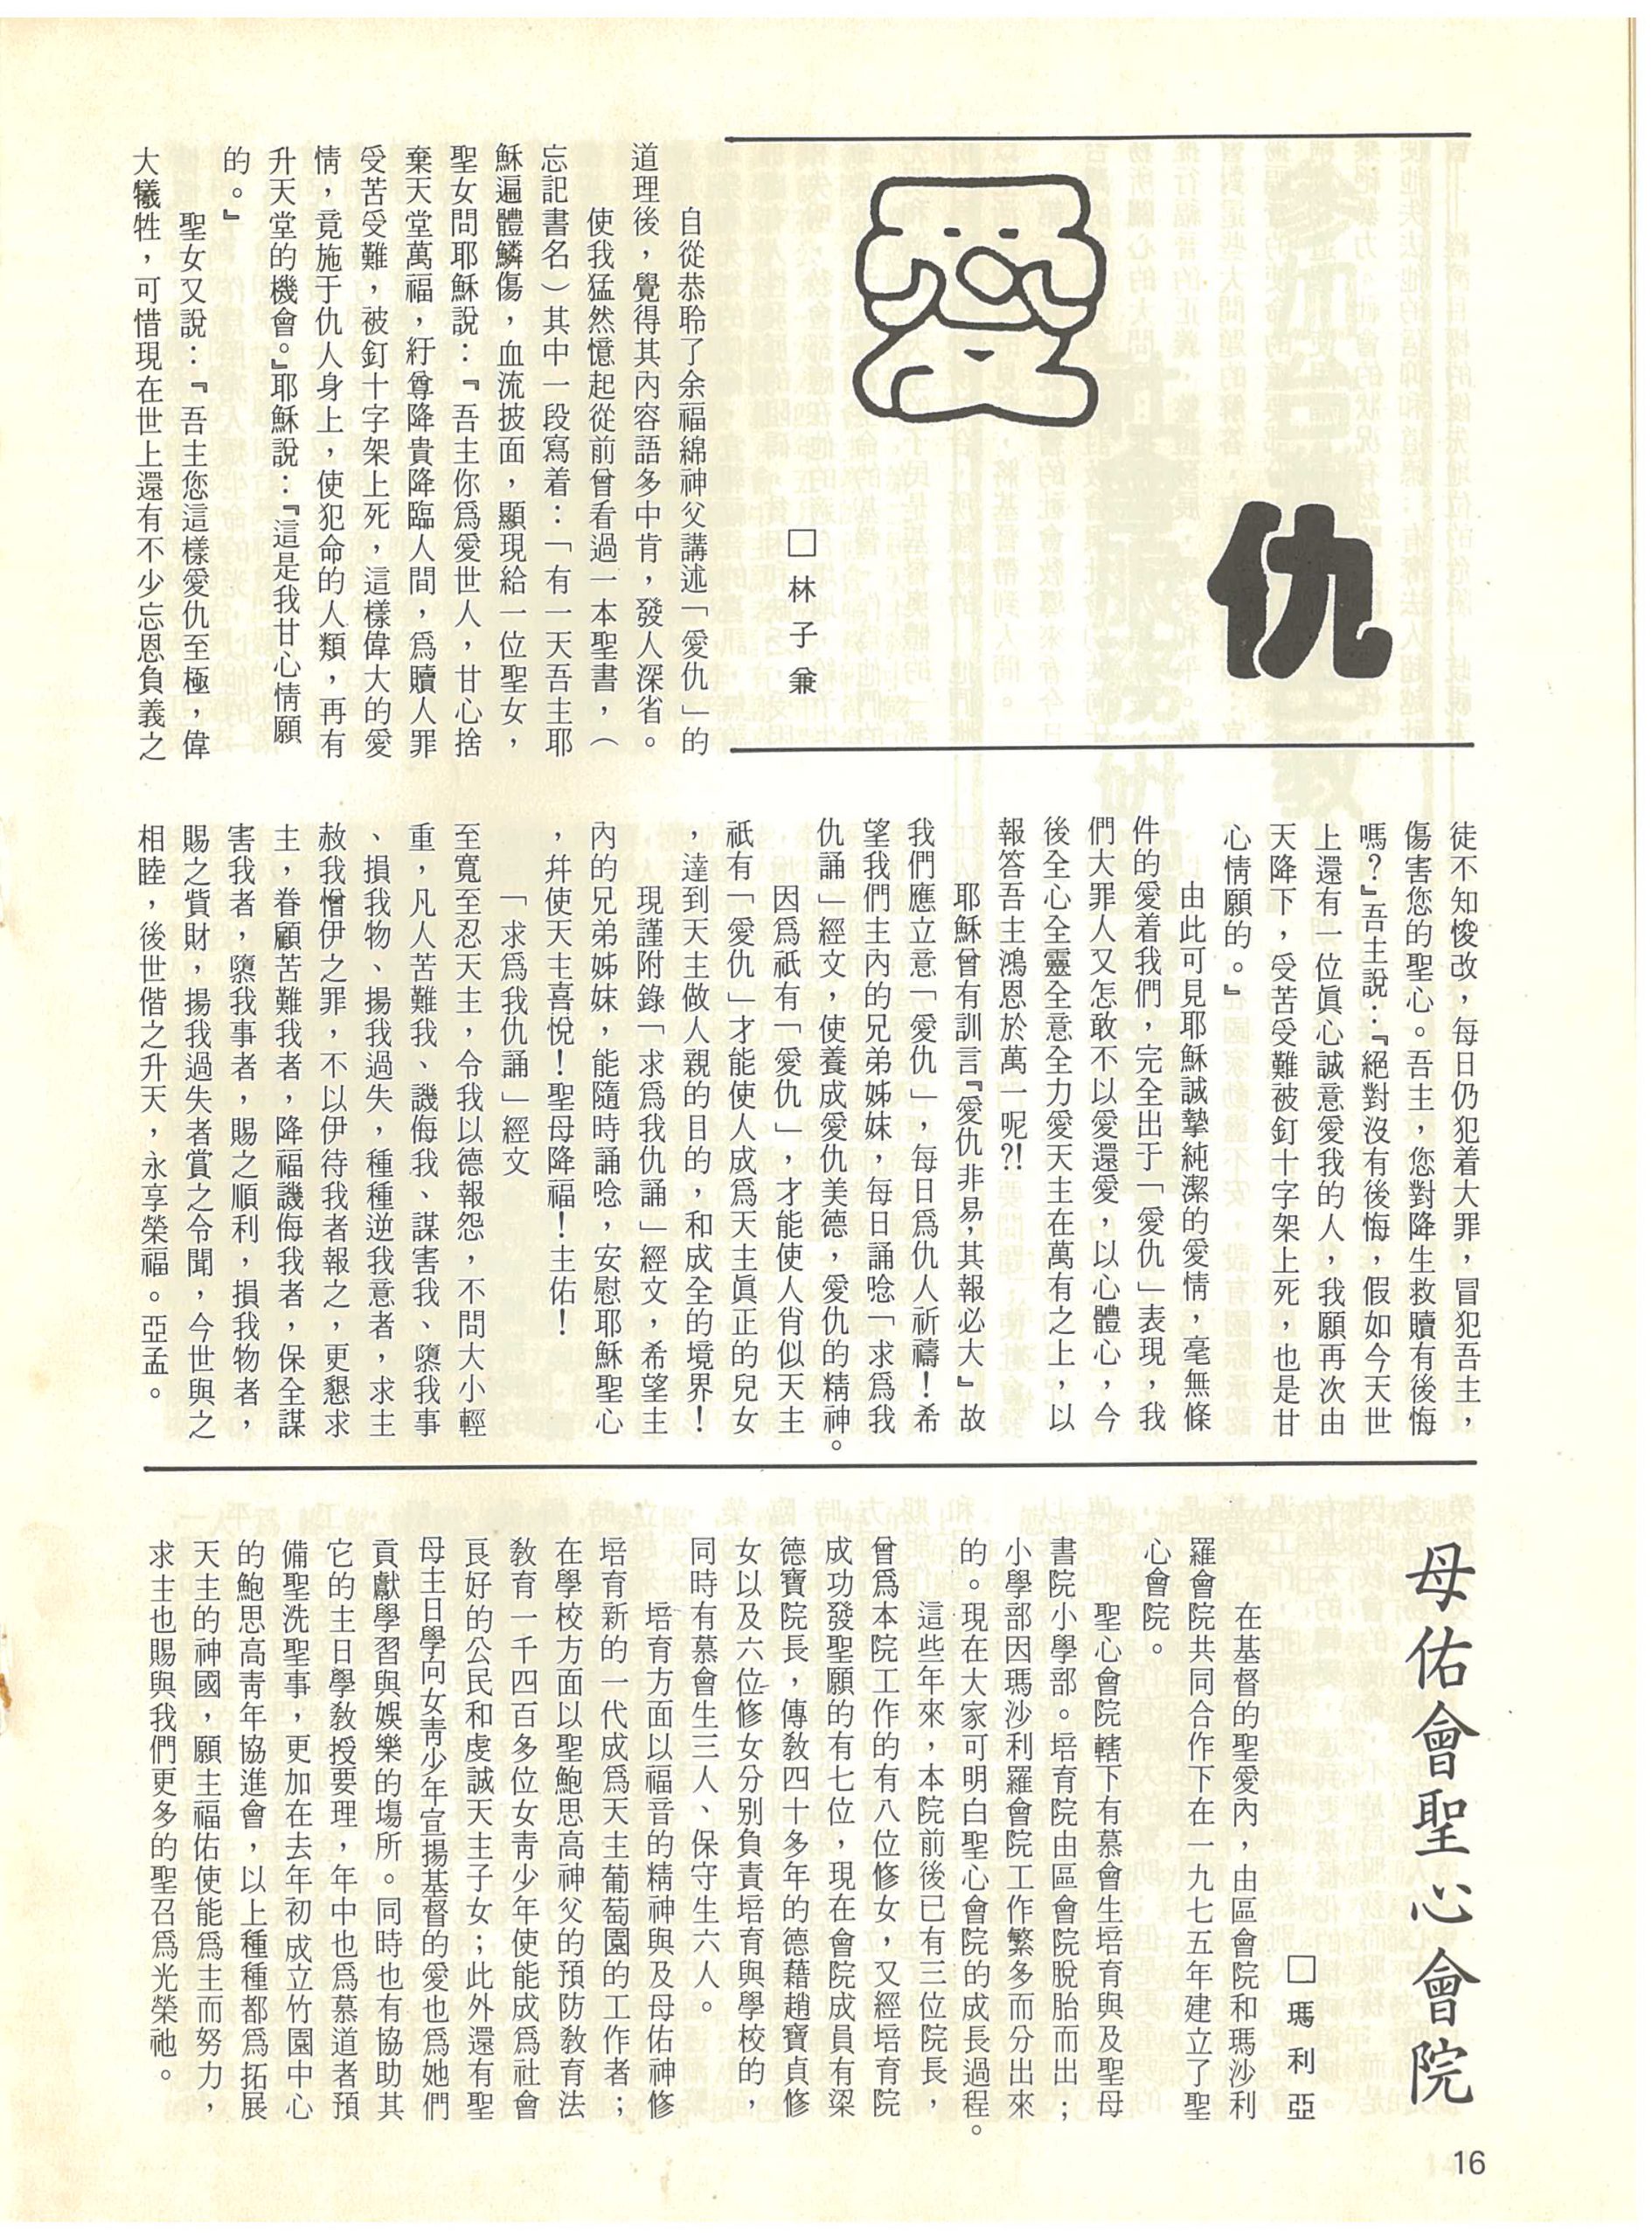 愛仇
□林子兼
自從恭聆了余福綿神父講述「愛仇」的
道理後，覺得其內容語多中肯，發人深省。
使我猛然憶起從前曾看過一本聖書，（
忘記書名）其中一段寫着：「有一天吾主耶
穌遍體鱗傷，血流披面，顯現給一位聖女，
聖女問耶穌說：『吾主你爲愛世人，甘心捨
棄天堂萬福，紆尊降貴降臨人間，爲贖人罪
受苦受難，被釘十字架上死，這樣偉大的愛
情，竟施于仇人身上，使犯命的人類，再有
升天堂的機會。』耶穌說：『這是我甘心情願
的。』
聖女又說：『吾主您這樣愛仇至極，偉
大犧牲，可惜現在世上還有不少忘恩負義之
徒不知悛改，每日仍犯着大罪，冒犯吾主，
傷害您的聖心。吾主，您對降生救贖有後悔
嗎？』吾主說：『絕對沒有後悔，假如今天世
上還有一位眞心誠意愛我的人，我願再次由
天降下，受苦受難被釘十字架上死，也是甘
心情願的。』
由此可見耶穌誠摯純潔的愛情，毫無條
件的愛着我們，完全出于「愛仇」表現，我
們大罪人又怎敢不以愛還愛，以心體心，今
後全心全靈全意全力愛天主在萬有之上，以
報答吾主鴻恩於萬一呢?!
耶穌曾有訓言『愛仇非易，其報必大』故
我們應立意「愛仇」，每日爲仇人祈禱！希
望我們主內的兄弟姊妹，每日誦唸「求爲我
仇誦」經文，使養成愛仇美德，愛仇的精神。
因爲祇有「愛仇」，才能使人肖似天主
祇有「愛仇」才能使人成爲天主眞正的兒女
，達到天主做人親的目的，和成全的境界！
現謹附錄「求爲我仇誦」經文，希望主
內的兄弟姊妹，能隨時誦唸，安慰耶穌聖心
，幷使天主喜悅！聖母降福！主佑！
「求爲我仇誦」經文
至寬至忍天主，令我以德報怨，不問大小輕
重，凡人苦難我、譏侮我、謀害我、隳我事
、損我物、揚我過失，種種逆我意者，求主
赦我憎伊之罪，不以伊待我者報之，更懇求
主，眷顧苦難我者，降福譏侮我者，保全謀
害我者，隳我事者，賜之順利，損我物者，
賜之貲財，揚我過失者賞之令聞，今世與之
相睦，後世偕之升天，永享榮福。亞孟。
母佑會聖心會院
□瑪利亞
在基督的聖愛內，由區會院和瑪沙利
羅會院共同合作下在一九七五年建立了聖
心會院。
聖心會院轄下有慕會生培育與及聖母
書院小學部。培育院由區會院脫胎而出；
小學部因瑪沙利羅會院工作繁多而分出來
的。現在大家可明白聖心會院的成長過程。
這些年來，本院前後已有三位院長，
曾爲本院工作的有八位修女，又經培育院
成功發聖願的有七位，現在會院成員有梁
德寶院長，傳敎四十多年的德藉趙寶貞修
女以及六位修女分別負責培育與學校的，
同時有慕會生三人、保守生六人。
培育方面以福音的精神與及母佑神修
培育新的一代成爲天主葡萄園的工作者；
在學校方面以聖鮑思高神父的預防敎育法
敎育一千四百多位女靑少年使能成爲社會
良好的公民和虔誠天主子女；此外還有聖
母主日學向女靑少年宣揚基督的愛也爲她們
貢獻學習與娛樂的場所。同時也有協助其
它的主日學敎授要理，年中也爲慕道者預
備聖洗聖事，更加在去年初成立竹園中心
的鮑思高靑年協進會，以上種種都爲拓展
天主的神國，願主福佑使能爲主而努力，
求主也賜與我們更多的聖召爲光榮祂。
16